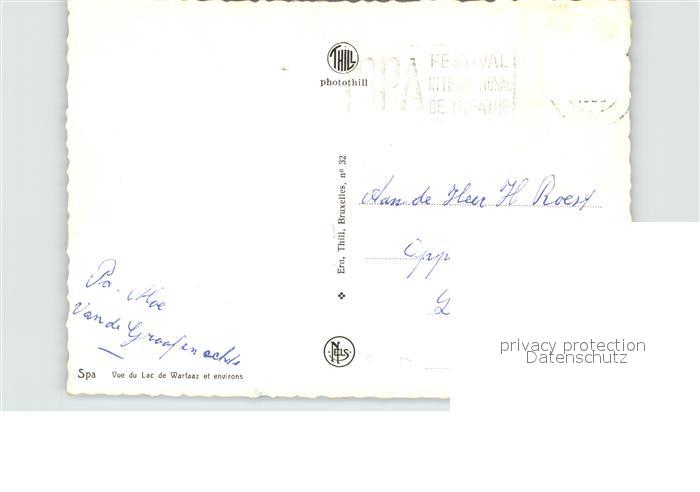 THILL
photothill
SPA
FESTIVAL
INTERNATIONAL
DE THEATRE
Ern. Thill, Bruxelles, nº 32
Aan de Heer H Roest
Opp
Pa. Moe
Van de
NELS
Spa Vue du Lac de Warfaaz et environs
privacy protection
Datenschutz